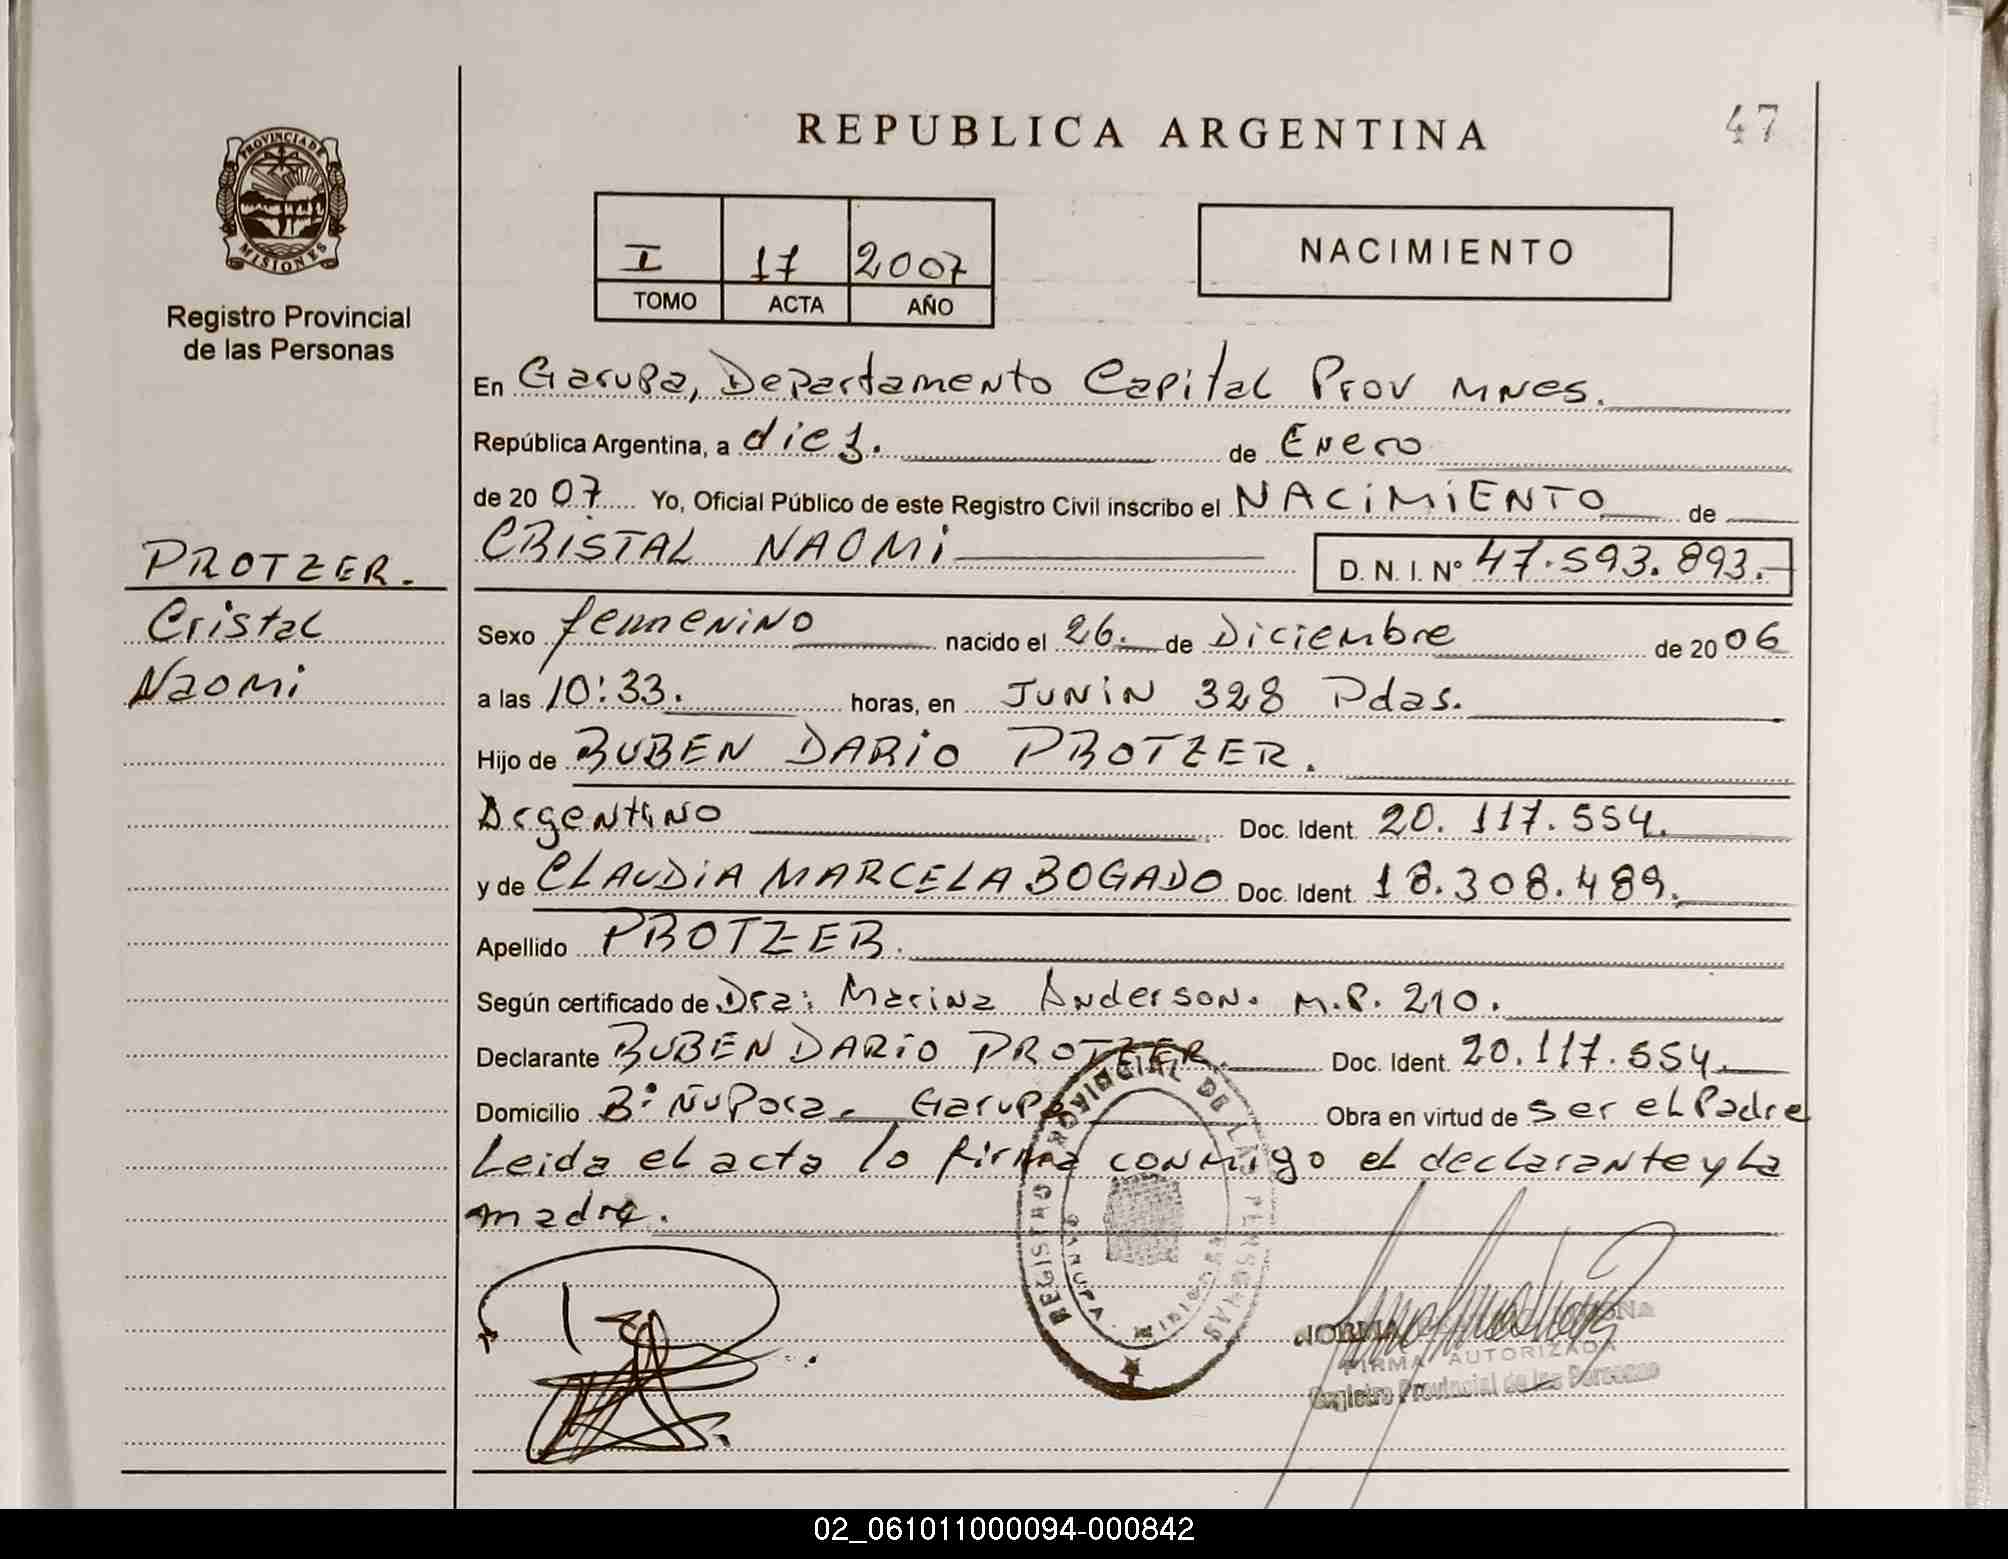 REPUBLICA ARGENTINA
47
PROVINCIA DE MISIONES
Registro Provincial
de las Personas
I 17 2007
TOMO ACTA AÑO
NACIMIENTO
En Garupa, Departamento Capital Prov Mnes.
República Argentina, a diez. de Enero
de 2007 Yo, Oficial Público de este Registro Civil inscribo el NACIMIENTO de
CRISTAL NAOMI D. N. I. N° 47.593.893.-
PROTZER.
Cristal
Naomi
Sexo femenino nacido el 26. de Diciembre de 2006
a las 10:33. horas, en JUNIN 328 Pdas.
Hijo de RUBEN DARIO PROTZER.
Argentino Doc. Ident. 20.117.554.
y de CLAUDIA MARCELA BOGADO Doc. Ident. 18.308.489.
Apellido PROTZER.
Según certificado de Dra: Marina Anderson. M.P. 210.
Declarante RUBEN DARIO PROTZER. Doc. Ident. 20.117.554.
Domicilio B° Ñu Pora. Garupa Obra en virtud de ser el Padre
Leida el acta lo firma conmigo el declarante y la
madre.
REGISTRO PROVINCIAL DE LAS PERSONAS
GARUPA MISIONES
NORMA
FIRMA AUTORIZADA
Registro Provincial de las Personas
02_061011000094-000842